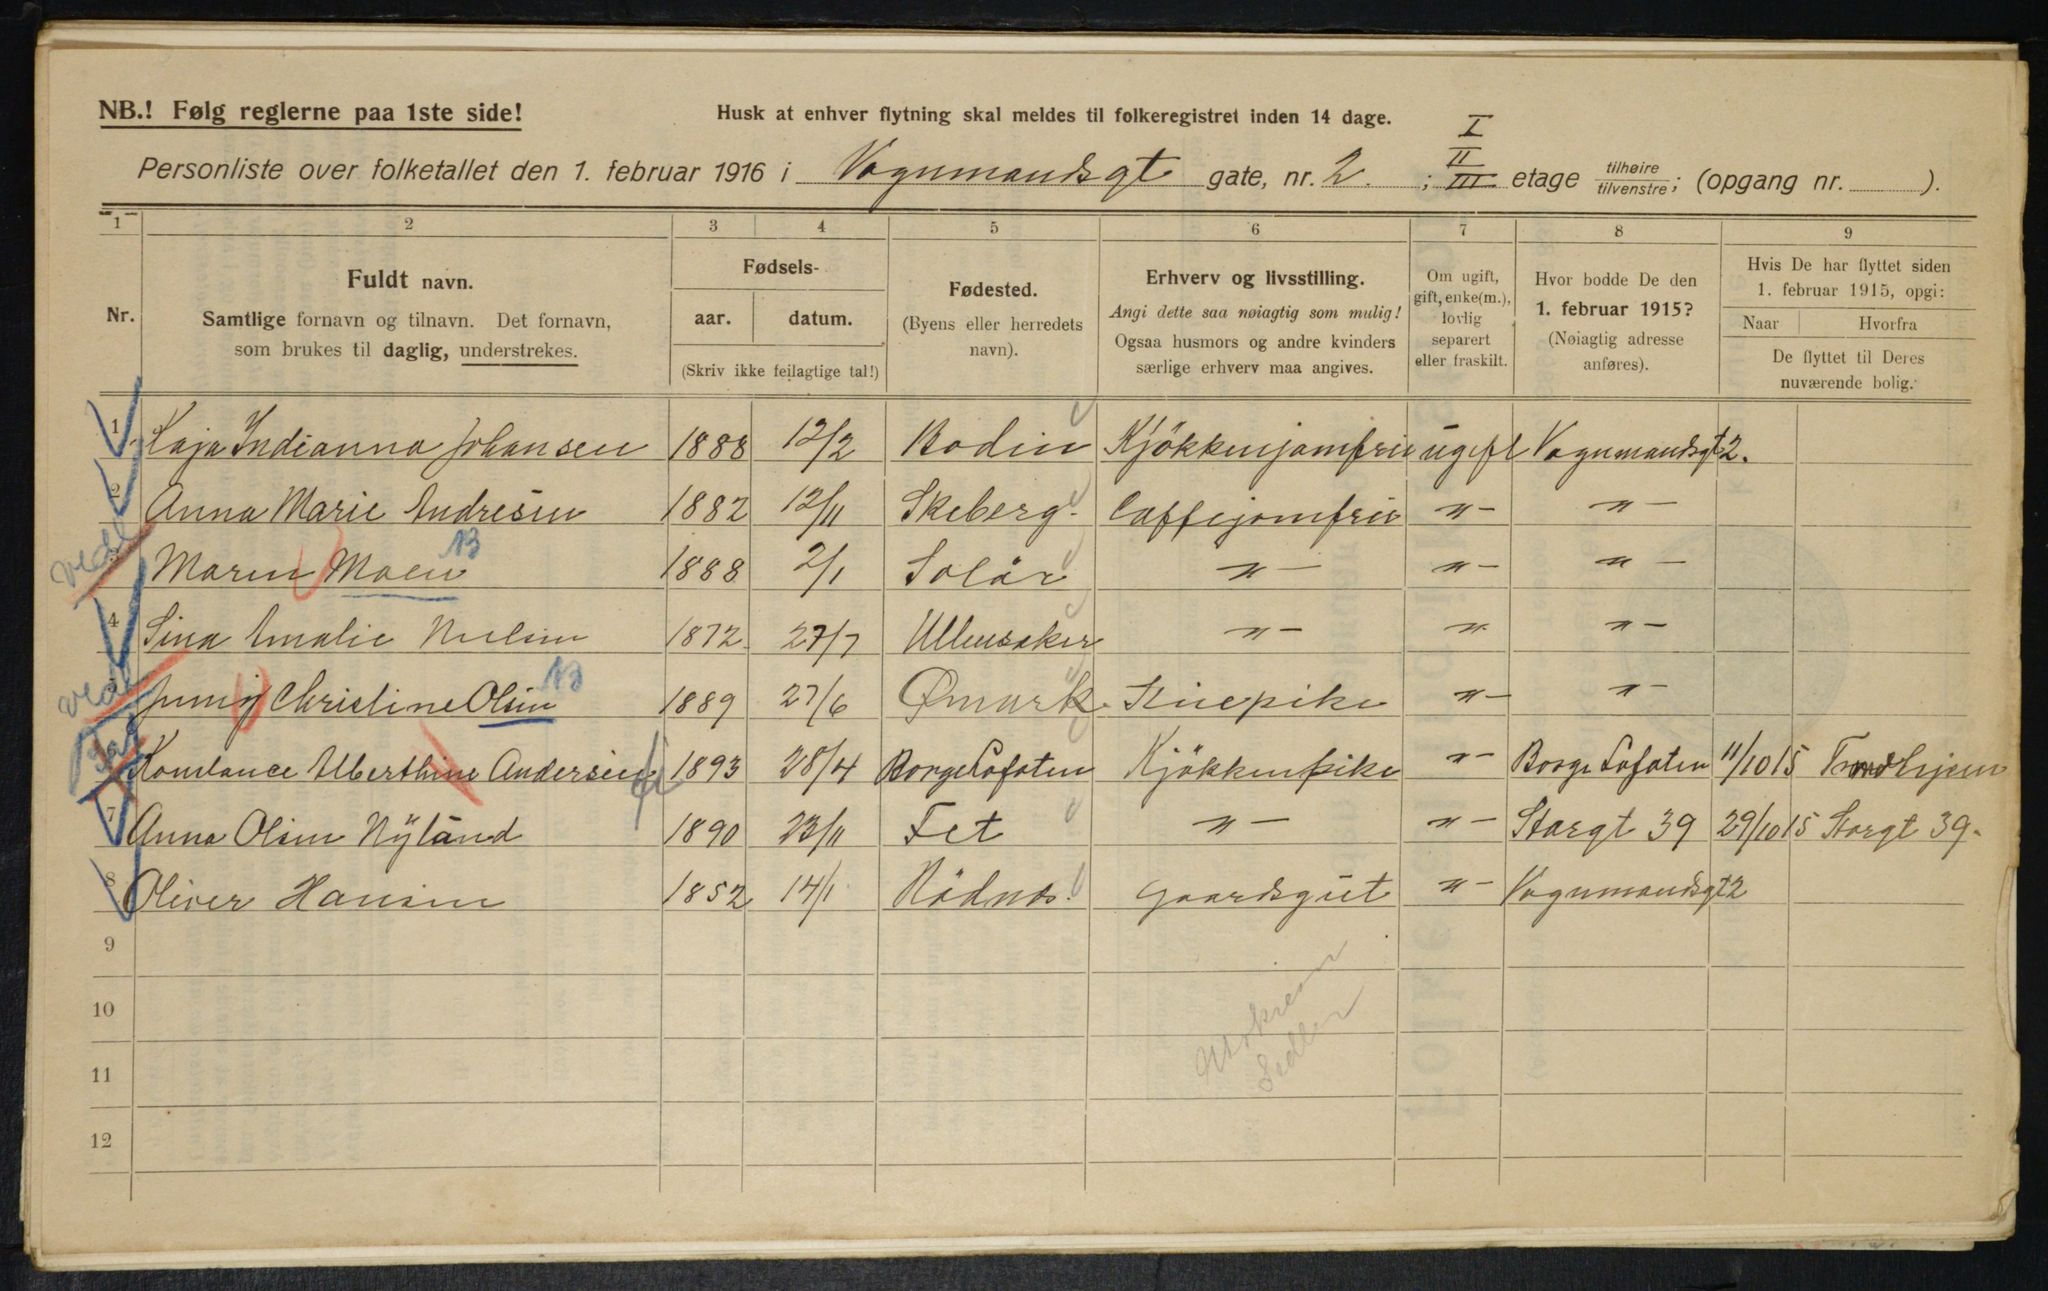 NB.! Følg reglerne paa 1ste side!
Husk at enhver flytning skal meldes til folkeregistret inden 14 dage.
Personliste over folketallet den 1. februar 1916 i Vognmandsgt gate, nr. 2. ; I II III etage tilhøire tilvenstre; (opgang nr. ).
1 2 3 4 5 6 7 8 9
Nr.
Fuldt navn.
Samtlige fornavn og tilnavn. Det fornavn,
som brukes til daglig, understrekes.
Fødsels-
aar. datum.
(Skriv ikke feilagtige tal!)
Fødested.
(Byens eller herredets
navn).
Erhverv og livsstilling.
Angi dette saa nøiagtig som mulig!
Ogsaa husmors og andre kvinders
særlige erhverv maa angives.
Om ugift,
gift, enke(m.),
lovlig
separert
eller fraskilt.
Hvor bodde De den
1. februar 1915?
(Nøiagtig adresse
anføres).
Hvis De har flyttet siden
1. februar 1915, opgi:
Naar Hvorfra
De flyttet til Deres
nuværende bolig.
1 Kaja Indianna Johansen 1888 12/2 Bodin Kjökkenjomfru ugift Vognmandsgt 2.
2 Anna Marie Andresen 1882 12/11 Skeberg. Caffejomfru " "
3 Maren Moen 1888 2/1 Solör " " "
4 Lina Amalie Nielsen 1872 27/7 Ullensaker " " "
5 Jenny Christine Olsen 1889 27/6 Ømark Stuepike " "
6 Konstance Alberthine Andersen 1893 28/4 Borge Lofoten Kjökkenpike " Borge Lofoten 11/10 15 Trondhjem
7 Anna Olsen Nyland 1890 23/11 Fet " " Storgt 39 29/10 15 Storgt 39.
8 Oliver Hansen 1852 14/1 Rödnes. Gaardsgut " Vognmandsgt 2
9
10
11
12